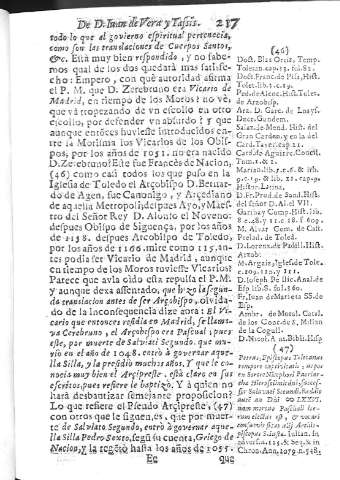 De D. Iuan de Vera y Tassis. 217
todo lo que al govierno espiritual pertenecia,
como son las translaciones de Cuerpos Santos,
&c. Està muy bien respondido, y no sabe-
mos qual de los dos quedarà mas satisfe-
cho: Empero, con què autoridad afirma
el P. M. que D. Zerebruno era Vicario de
Madrid, en tiempo de los Moros? no vè
que và tropezando de vn escollo en otro
escollo, por defender vn absurdo? y que
aunque entonces huviesse introducidos en-
tre la Morisma los Vicarios de los Obis-
pos, por los años de 1051. no era nacido
D. Zerebruno? Este fue Francès de Nacion,
(46) como casi todos los que puso en la
Iglesia de Toledo el Arçobispo D. Bernar-
do de Agen, fue Canonigo, y Arcediano
de aquella Metropoli; despues Ayo, y Maes-
tro del Señor Rey D. Alonso el Noveno:
despues Obispo de Siguença, por los años
de 1158. despues Arçobispo de Toledo,
por los años de 1166. mire como 115. an-
tes podia ser Vicario de Madrid, aunque
en tiempo de los Moros tuviesse Vicarios?
Parece que avia oido esta repulsa el P. M.
y aunque dexa assentado, que hizo la segun-
da translacion antes de ser Arçobispo, olvida-
do de la inconsequencia dize aora: El Vi-
cario que entonces residia en Madrid, se llama-
va Cerebruno, el Arçobispo era Pascual; pues
este, por muerte de Salvato Segundo, que mu-
riò en el año de 1048. entrò à governar aque-
lla Silla, y la presidiò muchos años. Y que le co-
nocia muy bien el Arçipreste, està claro en sus
escritos, pues refiere le baptizò. Y à quien no
harà desbautizar semejante proposicion?
Lo que refiere el Pseudo Arçipreste, (47)
con otros que le siguen, es, que por muer-
te de Salvato Segundo, entrò à governar aque-
lla Silla Pedro Sexto, segun su cuenta, Griego de
Nacion, y la regentò hasta los años de 1055.
Ee que
(46)
Doct. Blas Ortiz, Temp.
Toletan. cap. 13. fol. 82.
Doct. Francisc. Pisa, Hist.
Tolet. lib. 1. c. 19.
Ped. de Alcoc. Hist. Toled.
de Arzobisp.
Arz. D. Garc. de Loays.
Decr. Gundem.
Salaz. de Mend. Hist. del
Gran Carden. y en la del
Card. Taver. cap. 21.
Card. de Aguirre, Concil.
Tom. 1. & 2.
Hister. Latina.
D. Fr. Prud. de Sand. Hist.
del Señor D. Al. el VII.
Garibay Comp. Hist. lib.
M. Alvar Gom. de Cast.
Prelad. de Toled.
D. Lorenzo de Padill. Hist.
Arzob.
M. Argaiz, Igles. de Toled.
c. 109. 110. y 111.
D. Joseph Pellic. Anal. de
Esp. lib. 8. fol. 180.
Fr. Juan de Marieta SS. de
Esp.
Ambr. de Moral. Catal.
de los Godos, S. Millan
de la Cogull.
D. Nicol. Ant. Bibl. Hisp.
(47)
Petrus, Episcopus Toletanus